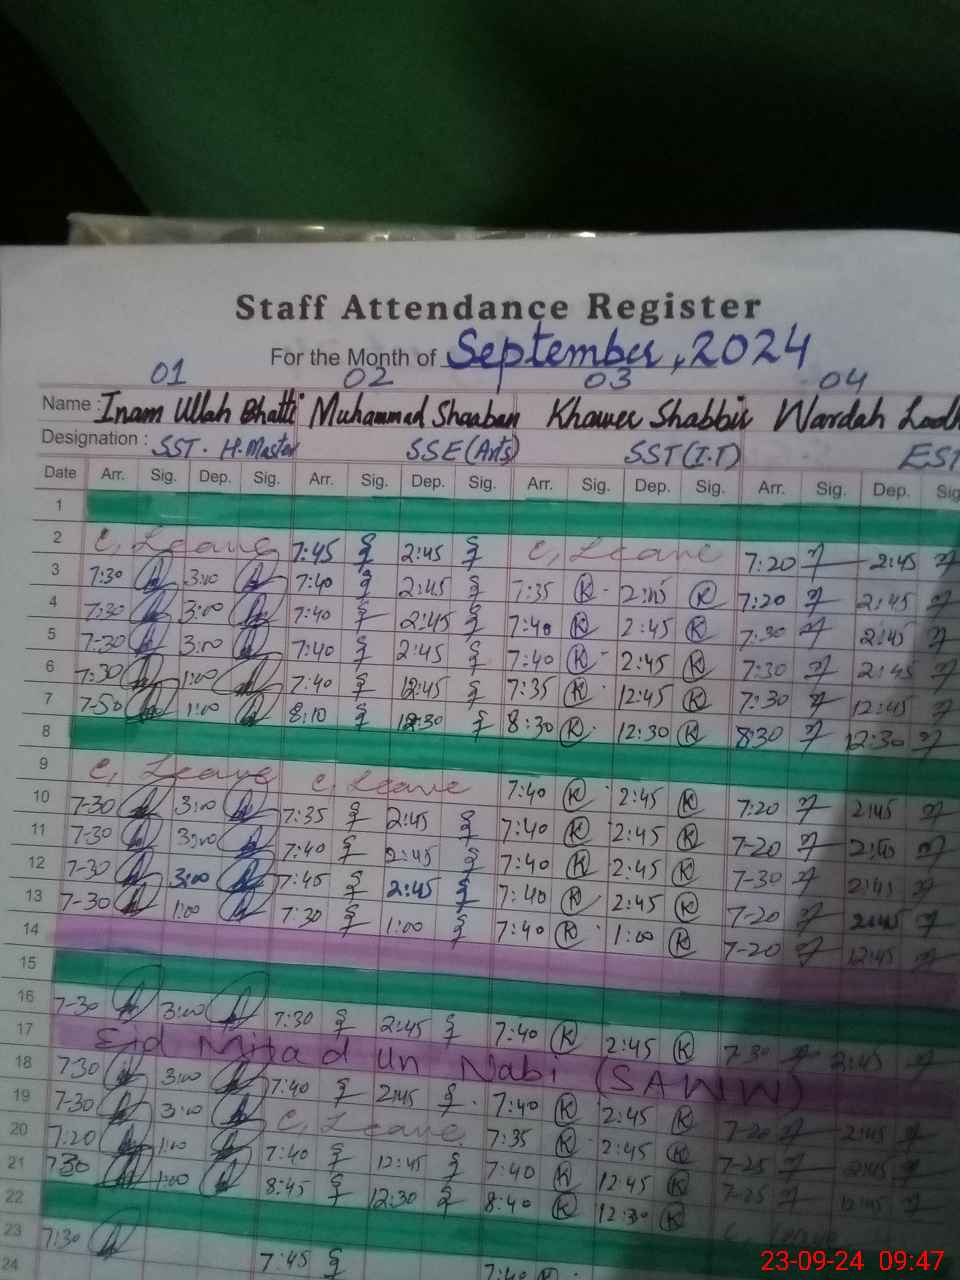 Staff Attendance Register
For the Month of September, 2024
01 02 03 04
Name : Inam Ullah Bhatti Muhammad Shaaban Khawer Shabbir Wardah
Designation : SST. H.Master SSE(Arts) SST(I.T) EST
Date Arr. Sig. Dep. Sig. Arr. Sig. Dep. Sig. Arr. Sig. Dep. Sig. Arr. Sig. Dep. Sig
1
2 C, Leave 7:45 2:45 C, Leave 7:20 2:45
3 7:30 3:00 7:40 2:45 7:35 K 2:45 K 7:20 2:45
4 7:30 3:00 7:40 2:45 7:40 K 2:45 K 7:30 2:45
5 7-30 3:00 7:40 2:45 7:40 K 2:45 K 7:30 2:45
6 7:30 1:00 7:40 12:45 7:35 K 12:45 K 7:30 12:45
7 7-50 1:00 8:10 12:30 8:30 K 12:30 K 8:30 12:30
8
9 C, Leave C, Leave 7:40 K 2:45 K 7:20 2:45
10 7-30 3:00 7:35 2:45 7:40 K 2:45 K 7-20 2:45
11 7-30 3:00 7:40 2:45 7:40 K 2:45 K 7-30 2:45
12 7-30 3:00 7:45 2:45 7:40 K 2:45 K 7-20 2:45
13 7-30 1:00 7:30 1:00 7:40 K 1:00 K 7-20 12:45
14
15
16 7-30 3:00 7:30 2:45 7:40 K 2:45 K 7-30 2:45
17 Eid Milad un Nabi (SAWW)
18 7:30 3:00 7:40 2:45 7:40 K 2:45 K 7-20 2:45
19 7-30 3:00 C, Leave 7:35 K 2:45 K 7-25 2:45
20 7:20 1:00 7:40 12:45 7:40 K 12:45 K 7-25 12:45
21 7:30 1:00 8:45 12:30 8:40 K 12:30 K C, Leave
22
23 7:30 7:45 7:40 K
24
23-09-24 09:47